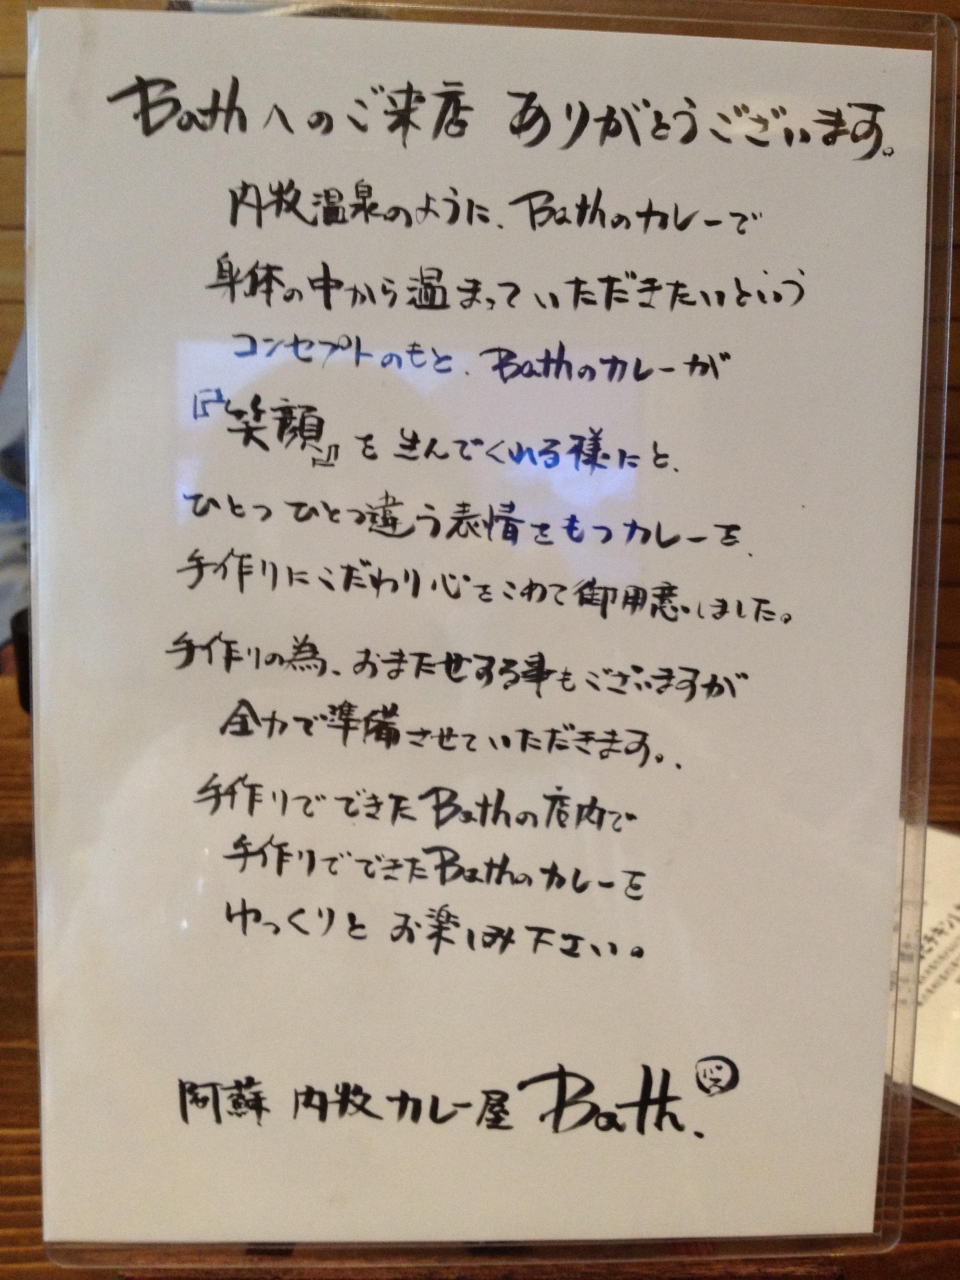 Bathへのご来店 ありがとうございます。
内牧温泉のように、Bathのカレーで
身体の中から温まっていただきたいという
コンセプトのもと、Bathのカレーが
『笑顔』を生んでくれる様にと、
ひとつひとつ違う表情をもつカレーを、
手作りにこだわり心をこめて御用意しました。
手作りの為、おまたせする事もございますが
全力で準備させていただきます。
手作りでできたBathの店内で
手作りでできたBathのカレーを
ゆっくりとお楽しみ下さい。
阿蘇 内牧カレー屋 Bath.